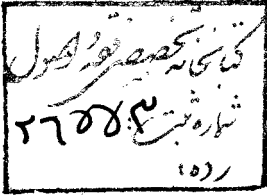 کتابخانه تخصصی فقه و اصول
شماره ثبت: ۲۶۷۷۳
رده: